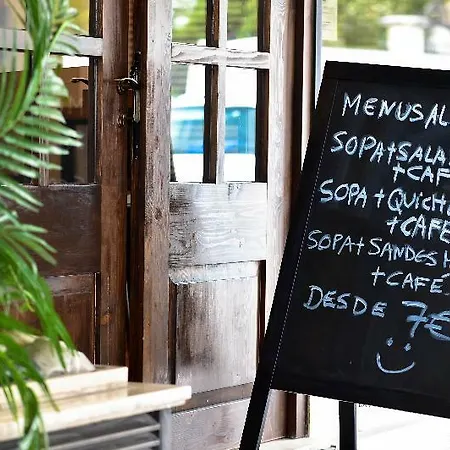 MENUSAL
SOPA+SALA
+CAF
SOPA+QUICH
+CAFE
SOPA+SANDES
+CAFÉ
DESDE 7€